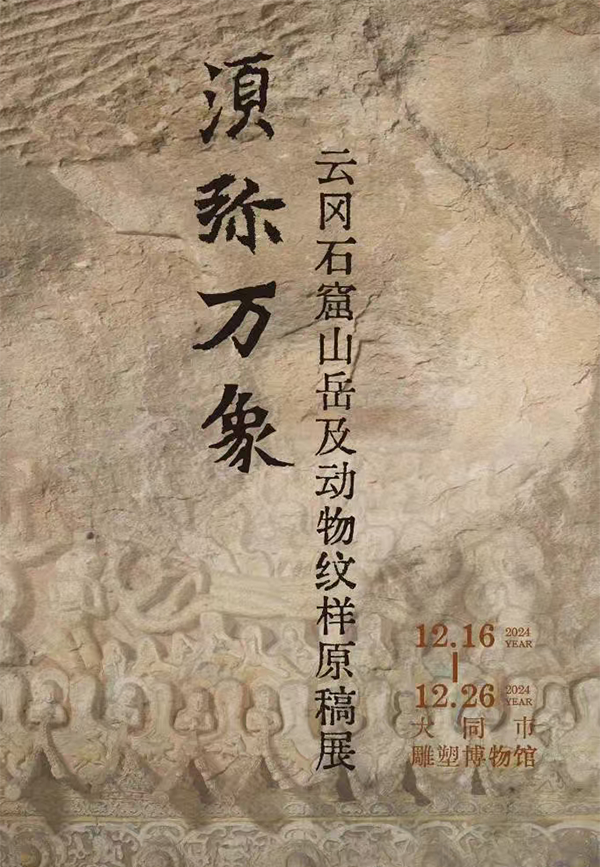 须弥万象
云冈石窟山岳及动物纹样原稿展
12.16 2024 YEAR
12.26 2024 YEAR
大同市
雕塑博物馆